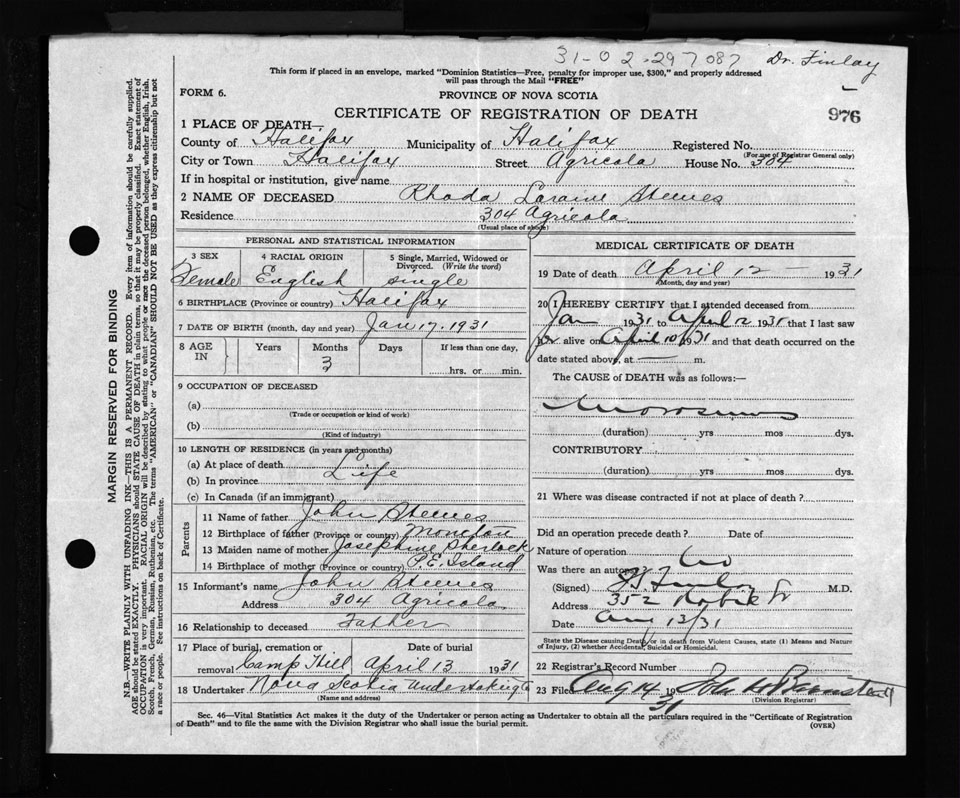 31-02-297087 Dr. Finlay
This form if placed in an envelope, marked "Dominion Statistics—Free, penalty for improper use, $300," and properly addressed
will pass through the Mail "FREE"
FORM 6.
PROVINCE OF NOVA SCOTIA
CERTIFICATE OF REGISTRATION OF DEATH
976
1 PLACE OF DEATH—
County of Halifax Municipality of Halifax Registered No.
(For use of Registrar General only)
City or Town Halifax Street Agricola House No. 304
If in hospital or institution, give name
2 NAME OF DECEASED Rhoda Loraine Steeves
Residence 304 Agricola
(Usual place of abode)
PERSONAL AND STATISTICAL INFORMATION
3 SEX 4 RACIAL ORIGIN 5 Single, Married, Widowed or
Divorced. (Write the word)
Female English single
6 BIRTHPLACE (Province or country) Halifax
7 DATE OF BIRTH (month, day and year) Jan 17, 1931
8 AGE IN Years Months Days If less than one day,
3 hrs. or min.
9 OCCUPATION OF DECEASED
(a)
(Trade or occupation or kind of work)
(b)
(Kind of industry)
10 LENGTH OF RESIDENCE (in years and months)
(a) At place of death
(b) In province Life
(c) In Canada (if an immigrant)
Parents
11 Name of father John Steeves
12 Birthplace of father (Province or country) Moncton
13 Maiden name of mother Josephine Sherlock
14 Birthplace of mother (Province or country) P.E. Island
15 Informant's name John Steeves
Address 304 Agricola
16 Relationship to deceased Father
17 Place of burial, cremation or Date of burial
removal Camp Hill April 13 1931
18 Undertaker Nova Scotia Undertaking Co
(Name and address)
MEDICAL CERTIFICATE OF DEATH
19 Date of death April 12 — 1931
(Month, day and year)
20 I HEREBY CERTIFY that I attended deceased from
Jan 1931 to April 12 1931 that I last saw
her alive on April 10 1931 and that death occurred on the
date stated above, at — m.
The CAUSE of DEATH was as follows:—
(duration) yrs mos dys.
CONTRIBUTORY
(duration) yrs mos dys.
21 Where was disease contracted if not at place of death?
Did an operation precede death? Date of
Nature of operation
Was there an autopsy No
(Signed) Finlay M.D.
Address 352 Robie St
Date 13/31
State the Disease causing Death, or in death from Violent Causes, state (1) Means and Nature
of Injury, (2) whether Accidental, Suicidal or Homicidal.
22 Registrar's Record Number
23 Filed Aug 14 1931
(Division Registrar)
Sec. 46—Vital Statistics Act makes it the duty of the Undertaker or person acting as Undertaker to obtain all the particulars required in the "Certificate of Registration
of Death" and to file the same with the Division Registrar who shall issue the burial permit.
(OVER)
MARGIN RESERVED FOR BINDING
N.B.—WRITE PLAINLY WITH UNFADING INK—THIS IS A PERMANENT RECORD. Every item of information should be carefully supplied.
AGE should be stated EXACTLY. PHYSICIANS should STATE CAUSE OF DEATH in plain terms, so that it may be properly classified. Exact statement of
OCCUPATION is very important. RACIAL ORIGIN will be described by stating to what people or race the deceased person belonged, whether English, Irish,
Scotch, French, German, Russian, Ruthenian, etc. The terms "AMERICAN" or "CANADIAN" SHOULD NOT BE USED as they express citizenship but not
a race or people. See instructions on back of Certificate.